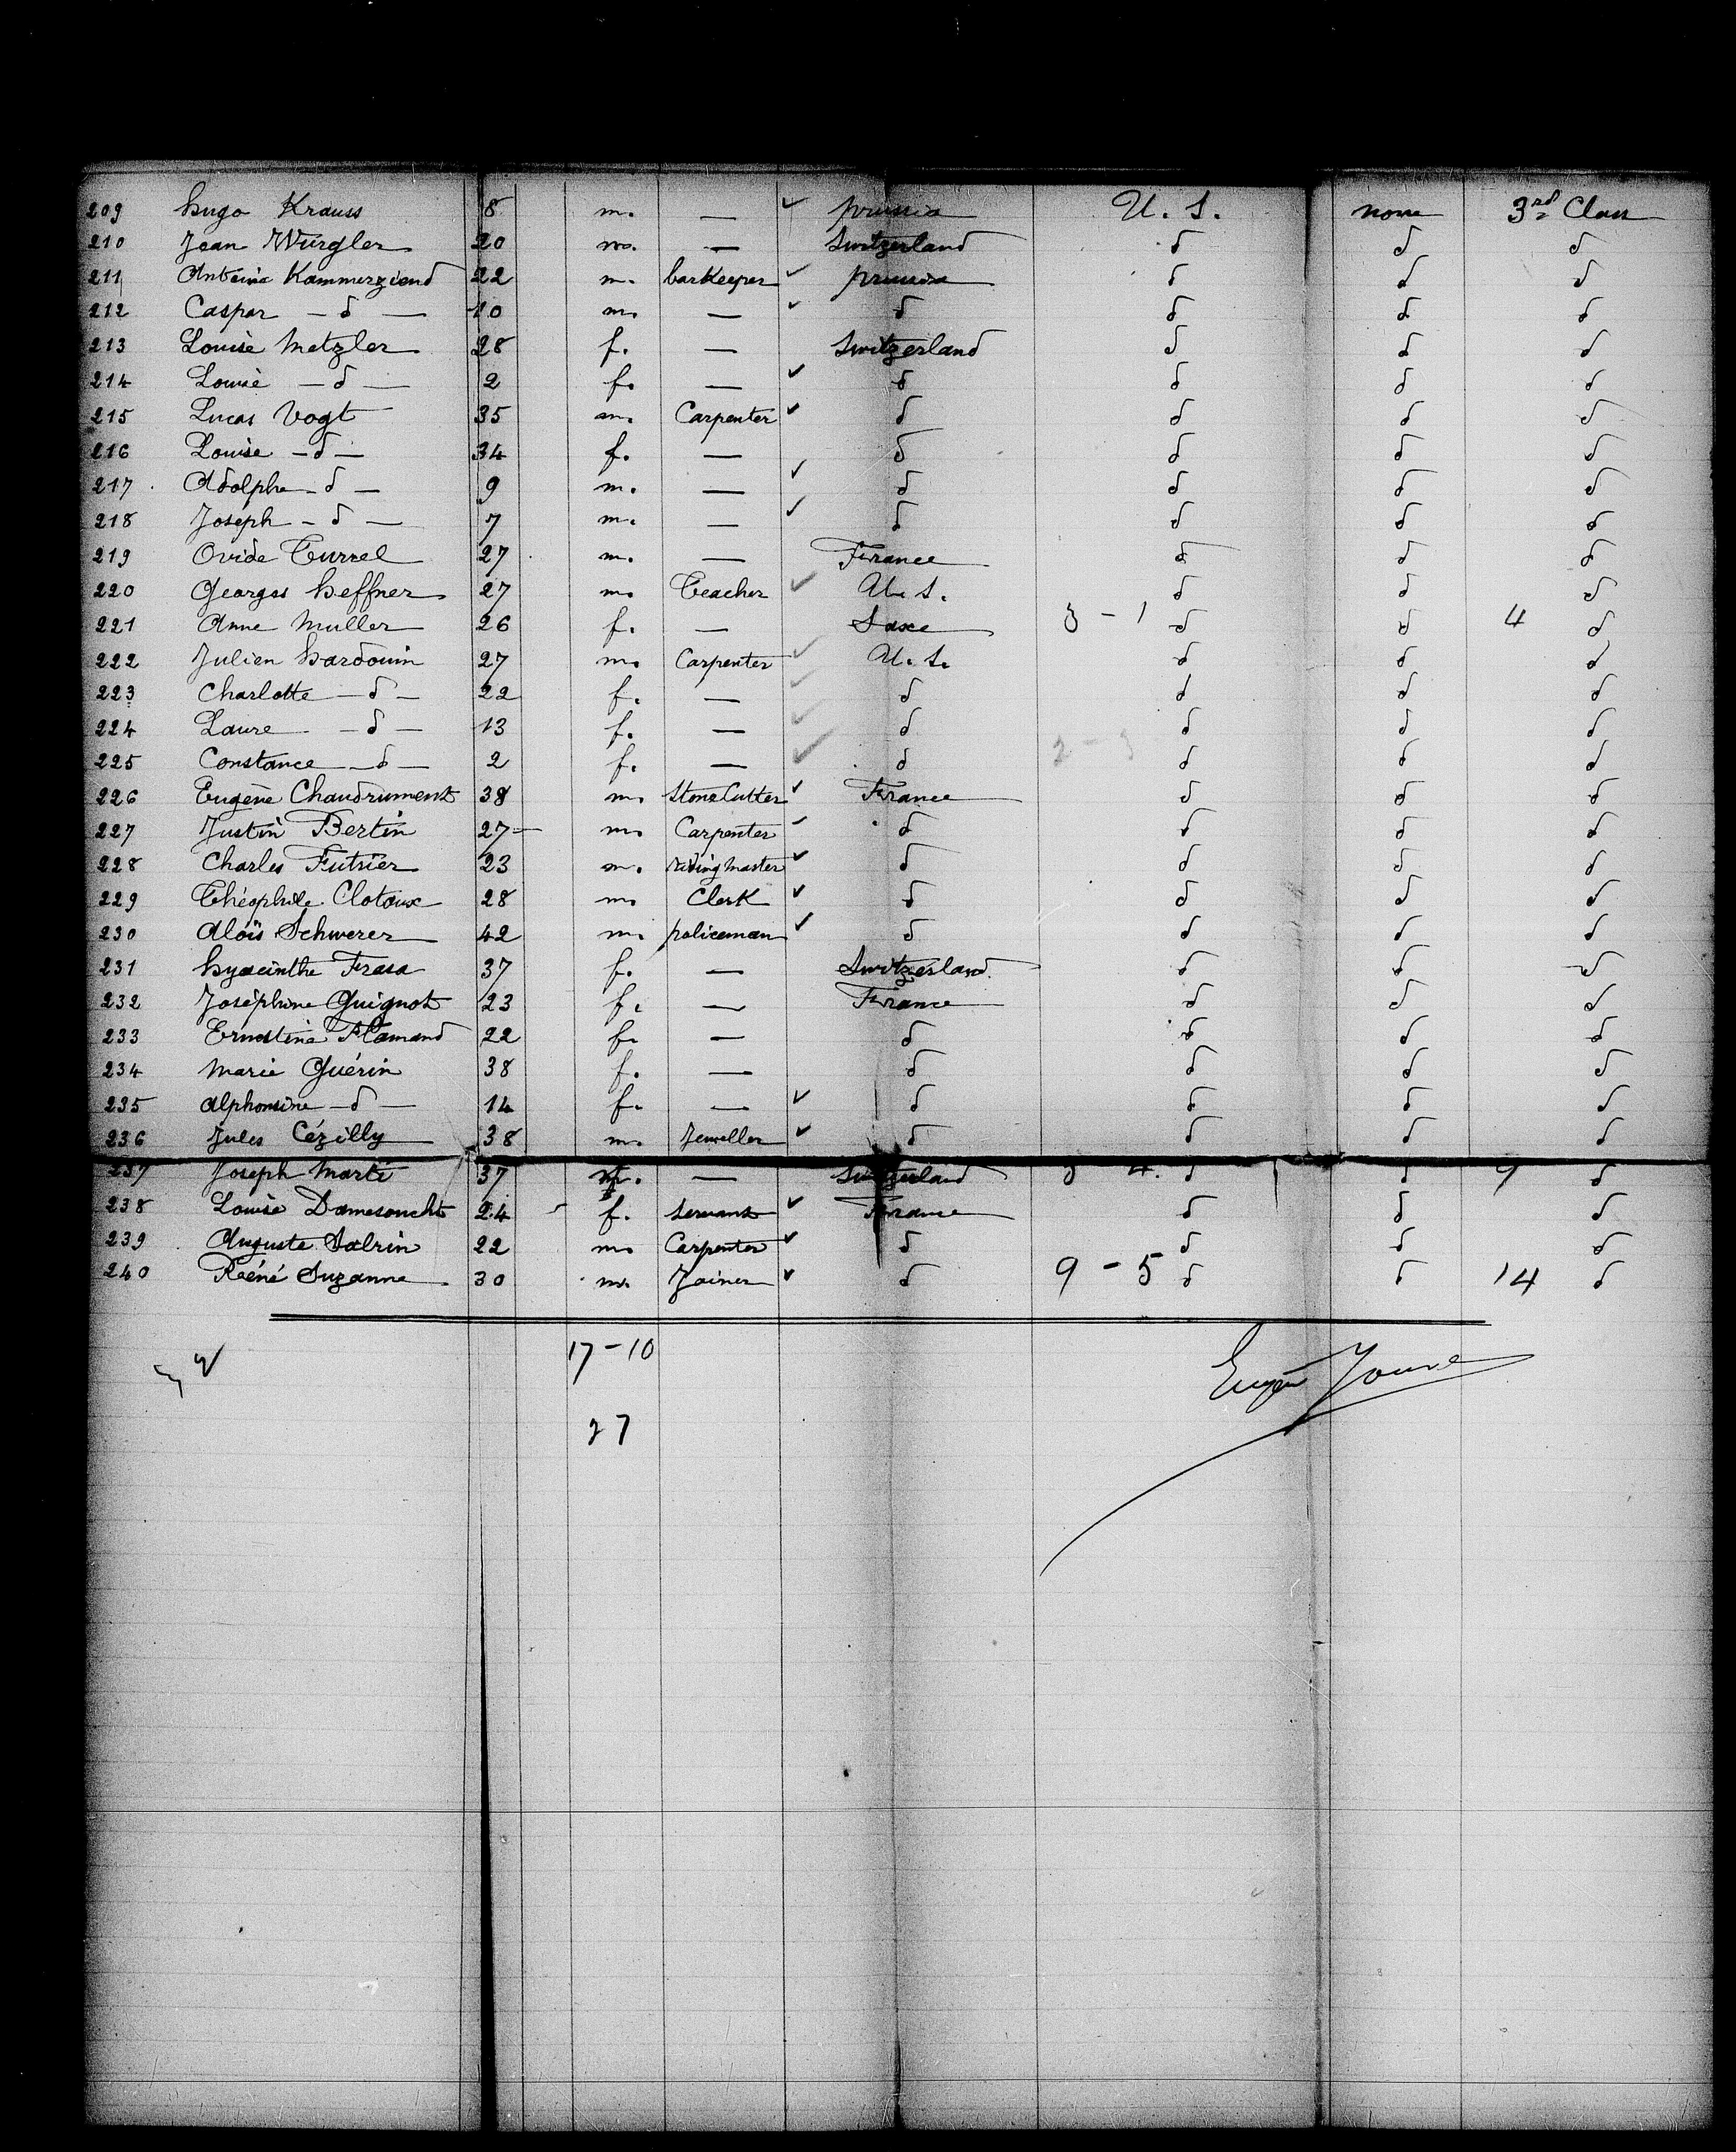 209 Hugo Krauss 8 m. — ✓ prussia U. S. none 3rd Class
210 Jean Würgler 20 m. — Switzerland d d d
211 Antoine Kammerziend 22 m. barKeeper ✓ prussia d d d
212 Caspar — d — 10 m. — ✓ d d d d
213 Louise Metzler 28 f. — Switzerland d d d
214 Louise — d — 2 f. — ✓ d d d d
215 Lucas Vogt 35 m. Carpenter ✓ d d d d
216 Louise — d — 34 f. — d d d d
217 Adolphe — d — 9 m. — ✓ d d d d
218 Joseph — d — 7 m. — ✓ d d d d
219 Ovide Turrel 27 m. — France d d d
220 Georges Heffner 27 m. Teacher ✓ U. S. d d d
221 Anne Muller 26 f. — Saxe 3 - 1 d d 4 d
222 Julien Hardouin 27 m. Carpenter ✓ U. S. d d d
223 Charlotte — d — 22 f. — ✓ d d d d
224 Laure — d — 13 f. — ✓ d d d d
225 Constance — d — 2 f. — ✓ d 2 - 3 d d d
226 Eugène Chaudrument 38 m. StoneCutter ✓ France d d d
227 Justin Bertin 27 — m. Carpenter ✓ d d d d
228 Charles Futrier 23 m. riding master ✓ d d d d
229 Théophile Clotaux 28 m. Clerk ✓ d d d d
230 Aloïs Schwerer 42 m. policeman ✓ d d d d
231 Hyacinthe Frasa 37 f. — Switzerland d d d
232 Joséphine Guignot 23 f. — France d d d
233 Ernestine Flamand 22 f. — d d d d
234 Marie Guérin 38 f. — d d d d
235 Alphonsine — d — 14 f. — ✓ d d d d
236 Jules Cézilly 38 m. Jeweller ✓ d d d d
237 Joseph Marti 37 m. — Switzerland 4. d d 9 d
238 Louise Damesoucht 24 f. Servant ✓ France d d d
239 Auguste Salrin 22 m. Carpenter ✓ d d d d
240 Réné Suzanne 30 m. Joiner ✓ d 9 - 5 d d 14 d
17 - 10
27